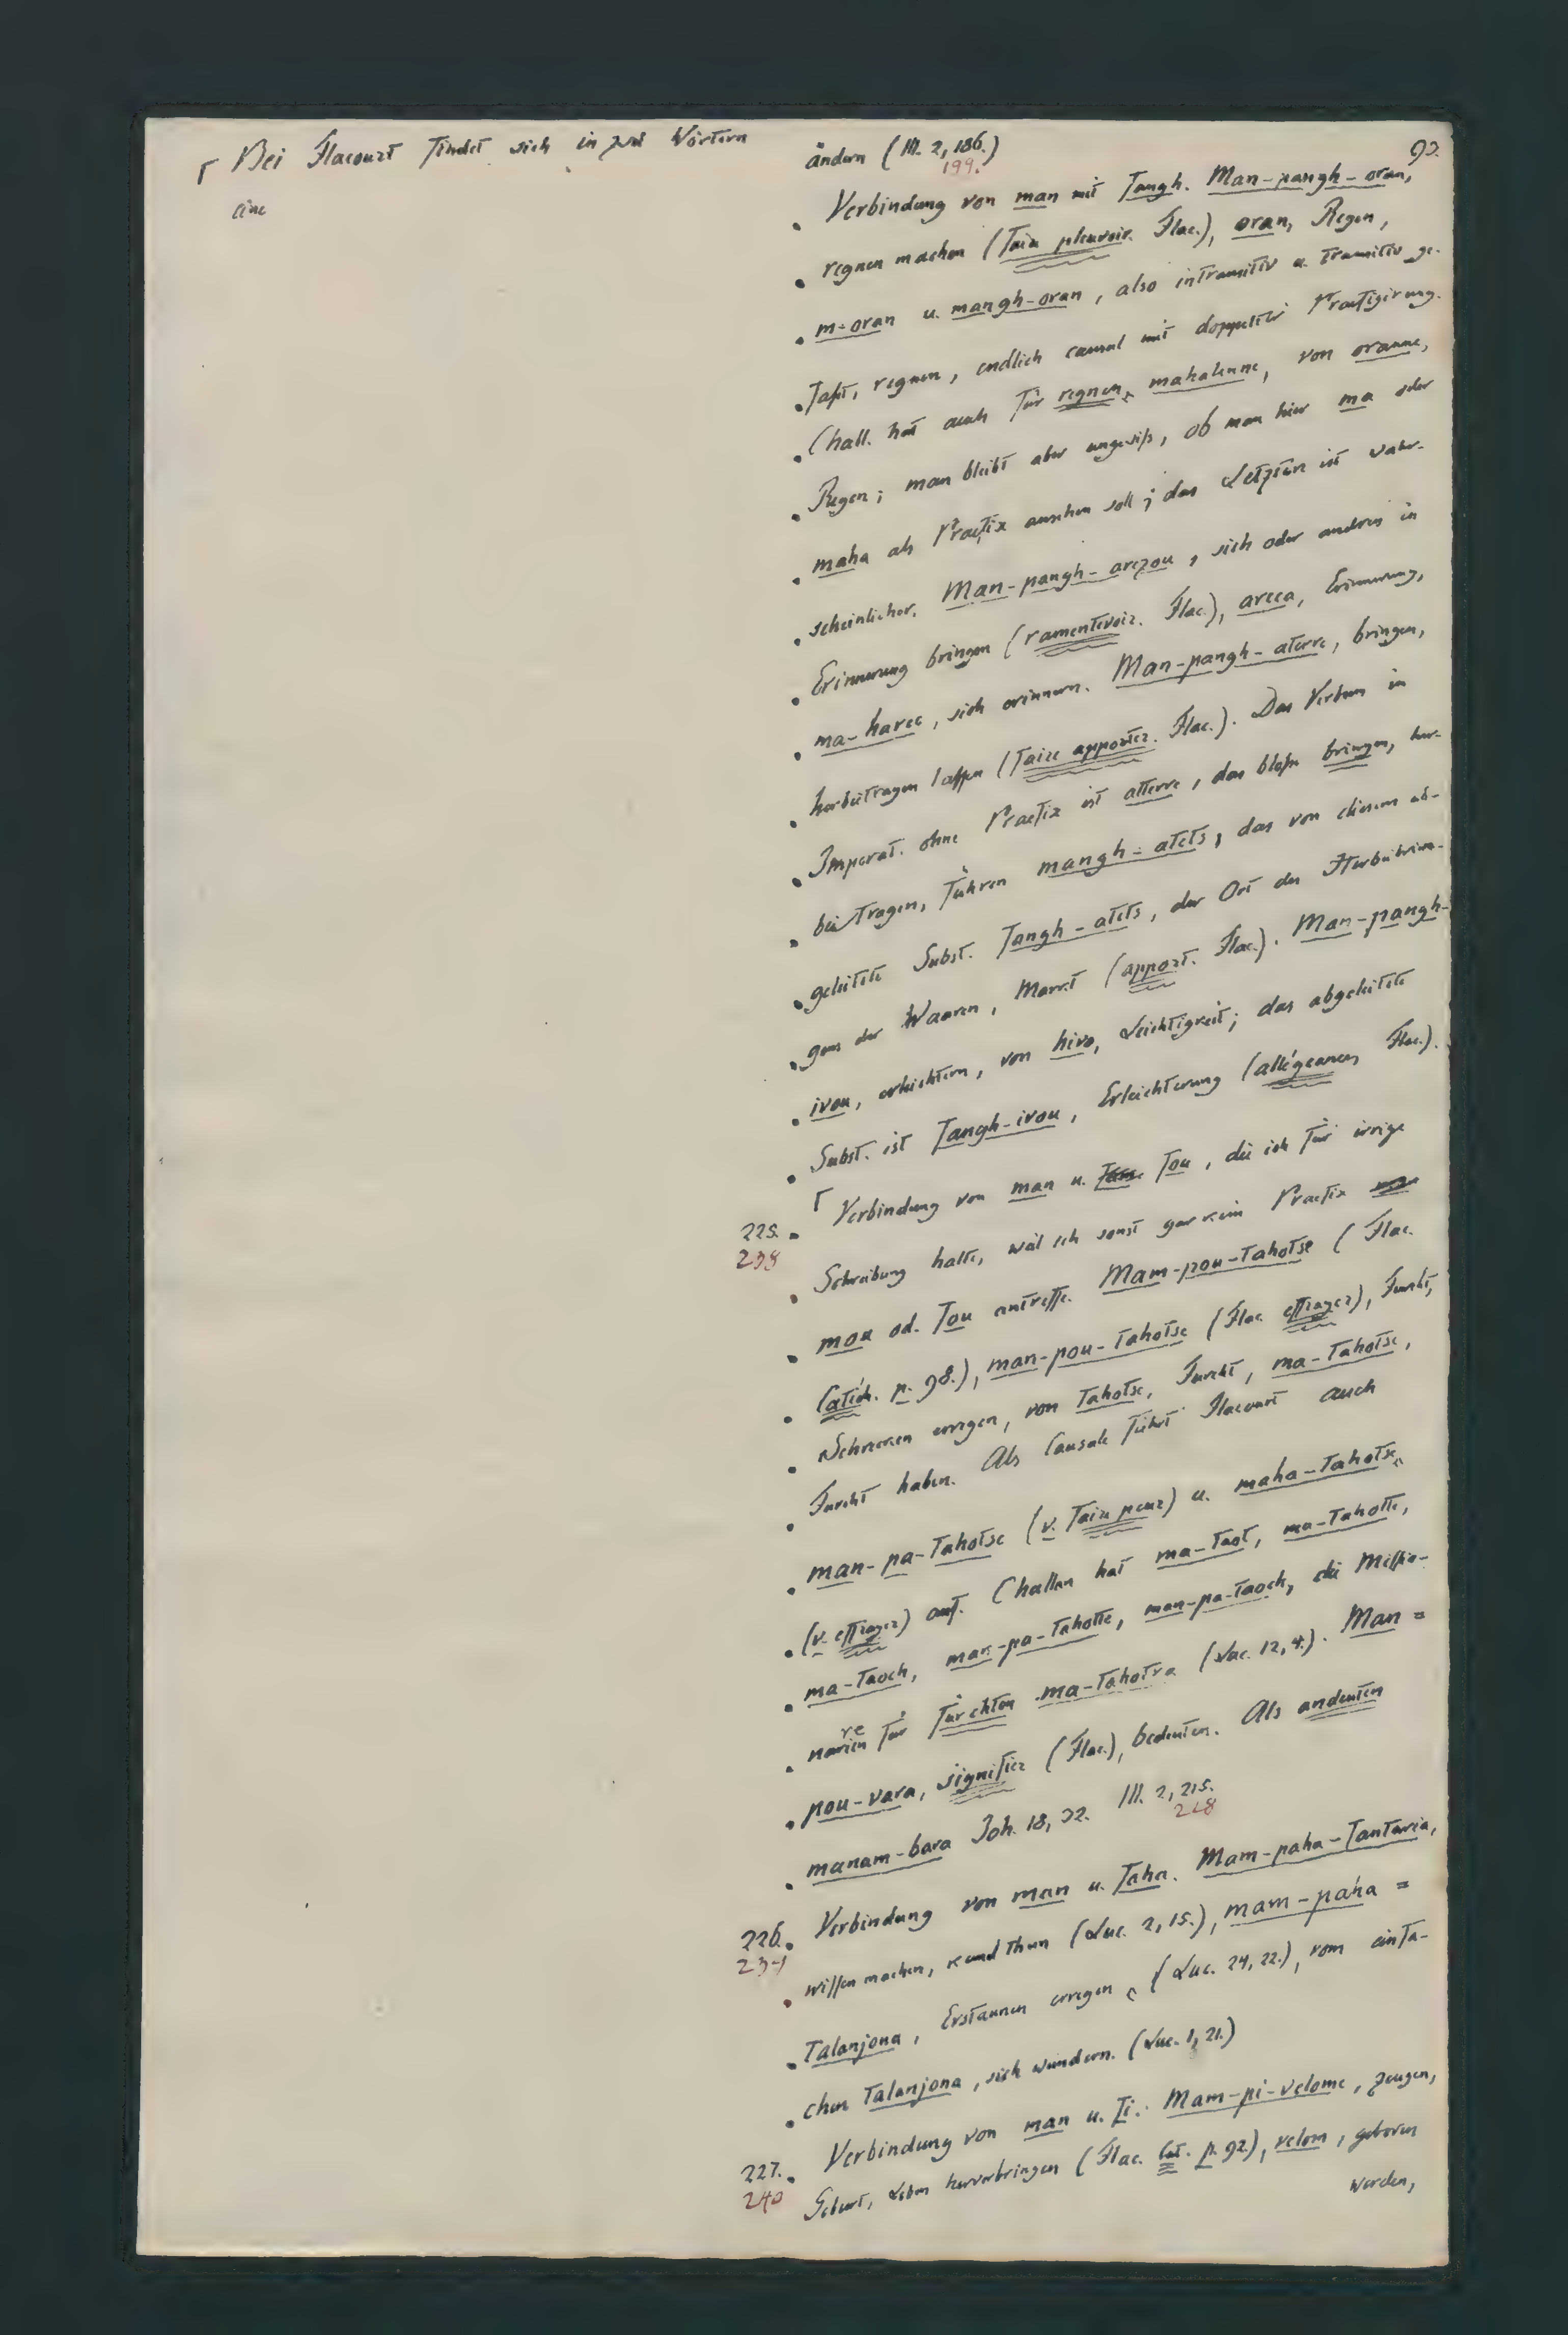 Bei Flacourt findet sich in zwei Wörtern
eine
92.
ändern (III. 2, 186.)
199.
Verbindung von man mit fangh. Man-pangh-oran,
regnen machen (fair pleuvoir. Flac.), oran, Regen,
m-oran u. mangh-oran, also intransitiv u. transitiv ge-
faßt, regnen, endlich causal mit doppelter Praefigirung.
Chall. hat auch für regnen, mahalenne, von oranne,
Regen; man bleibt aber ungewiß, ob man hier ma oder
maha als Praefix ansehen soll; das Letztere ist wahr-
scheinlicher. Man-pangh-arezou, sich oder andren in
Erinnerung bringen (ramentevoir. Flac.), areca, Erinnerung,
ma-harec, sich erinnern. Man-pangh-aterre, bringen,
herbeitragen lassen (faire apporter. Flac.). Das Verbum im
Imperat. ohne Praefix ist atterre, das bloße bringen, her-
beitragen, führen mangh-atets, das von diesem ab-
geleitete Subst. fangh-atets, der Ort des Herbeibrin-
gens der Waaren, Markt (apport. Flac.). Man-pangh-
ivou, erleichtern, von hivo, Leichtigkeit; das abgeleitete
Subst. ist fangh-ivou, Erleichterung (allégeance, Flac.).
225. Verbindung von man u. fou, die ich für irrige
238
Schreibung halte, weil ich sonst gar kein Praefix
mou od. fou antreffe. Mam-pou-tahotse (Flac.
Catéch. p. 98.), man-pou-tahotse (Flac. effrayer), Furcht,
Schrecken erregen, von tahotse, Furcht, ma-tahotse,
Furcht haben. Als Causale führt Flacourt auch
man-pa-tahotse (v. fair peur) u. maha-tahotse
(v. effrayer) auf. Challan hat ma-taot, ma-tahotte,
ma-taoch, man-pa-tahotte, man-pa-taoch, die Missio-
narien für fürchten ma-tahotra (Luc. 12, 4.). Man=
re
pou-vara, signifier (Flac.), bedeuten. Als andeuten
manam-bara Joh. 18, 32. III. 2, 215.
228
226. Verbindung von man u. faha. Mam-paha-fantaria,
239
wissen machen, kund thun (Luc. 2, 15.), mam-paha=
talanjona, Erstaunen erregen (Luc. 24, 22.), vom einfa-
chen talanjona, sich wundern. (Luc. 1, 21.)
227. Verbindung von man u. fi. Mam-pi-velome, zeugen,
240
Geburt, Leben hervorbringen (Flac. Cat. p. 92.), velom, geboren
werden,